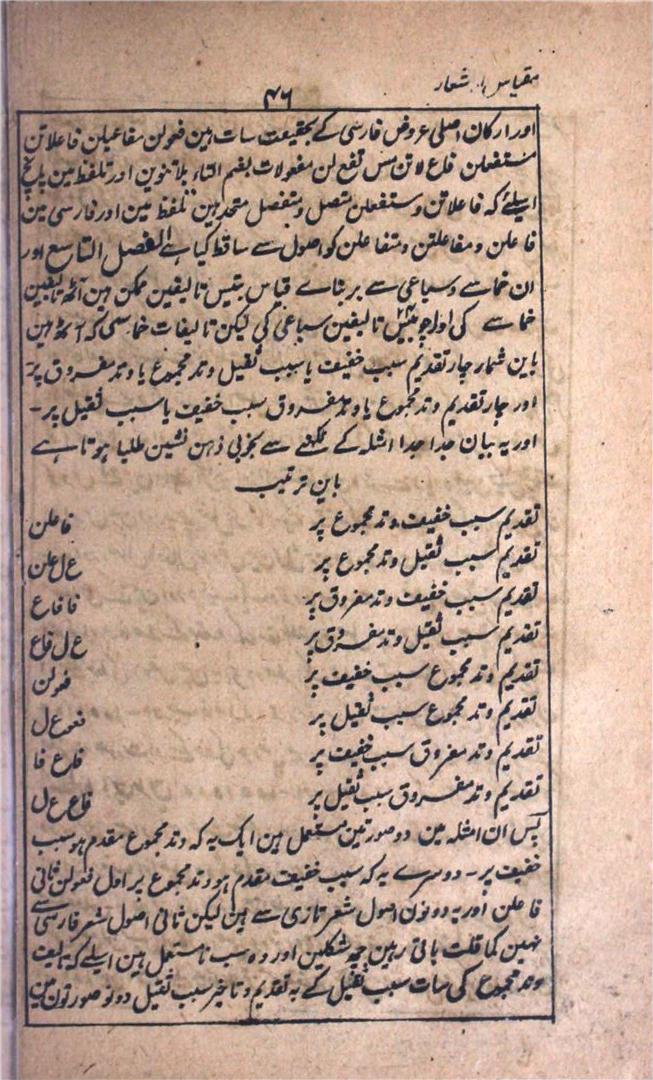 مقیاس الاشعار
۴۶
اور ارکان اصلی عروض فارسی کے بحقیقت سات ہین فعولن مفاعیلن فاعلاتن
مستفعلن فاع لاتن مس تفع لن مفعولات بضم التاء بلا تنوین اور تلفظ مین پانچ
اسلئے کہ فاعلاتن و مستفعلن متصل و منفصل متحد ہین تلفظ مین اور فارسی مین
فاعلن و مفاعلتن و متفاعلن کو اصول سے ساقط کیا ہے الفصل التاسع اور
ان خماسے و سباعی سے بر بناے قیاس بتیس تالیفین ممکن ہین آٹھ تالیفین
خماسے کی اور چوبیس ۲۴ تالیفین سباعی کی لیکن تالیفات خماسی کہ آٹھ ہین
باین شمار چار تقدیم سبب خفیف یا سبب ثقیل وتد مجموع یا وتد مفروق پر
اور چار تقدیم وتد مجموع یا وتد مفروق سبب خفیف یا سبب ثقیل پر۔
اور یہ بیان جدا جدا امثلہ کے لکھنے سے بخوبی ذہن نشین طلبا ہوتا ہے
باین ترتیب
تقدیم سبب خفیف وتد مجموع پر فاعلن
تقدیم سبب ثقیل وتد مجموع پر ع ل علن
تقدیم سبب خفیف وتد مفروق پر فا فاع
تقدیم سبب ثقیل وتد مفروق پر ع ل فاع
تقدیم وتد مجموع سبب خفیف پر فعولن
تقدیم وتد مجموع سبب ثقیل پر فعو ع ل
تقدیم وتد مفروق سبب خفیف پر فاع فا
تقدیم وتد مفروق سبب ثقیل پر فاع ع ل
پس ان امثلہ مین دو صورتین مستعمل ہین ایک یہ کہ وتد مجموع مقدم ہو سبب
خفیف پر۔ دوسرے یہ کہ سبب خفیف مقدم ہو وتد مجموع پر اول فعولن ثانی
فاعلن اور یہ دونون اصول شعر تازی سے ہین لیکن ثانی اصول شعر فارسی سے
نہین کما قلت باقی رہین چھ شکلین اور وہ سب نا مستعمل ہین اسلئے کہ تالیف
وتد مجموع کی سات سبب ثقیل کے بہ تقدیم و تاخیر سبب ثقیل دونو صورتون مین